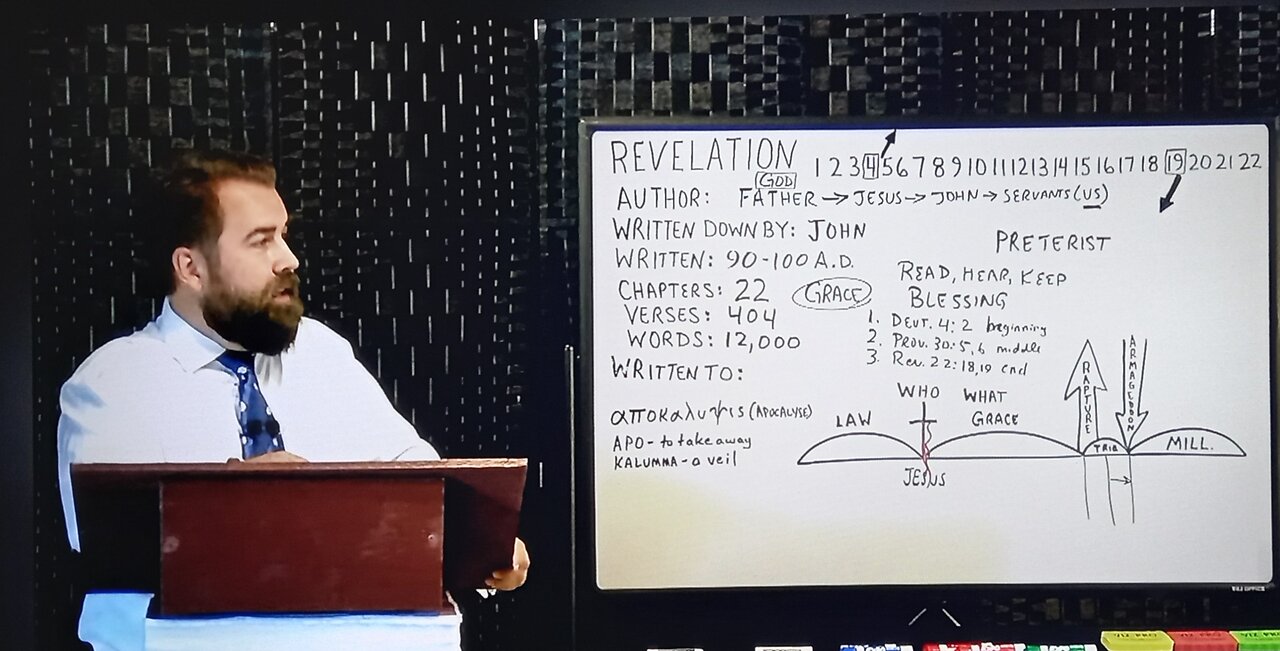 REVELATION 1 2 3 4 5 6 7 8 9 10 11 12 13 14 15 16 17 18 19 20 21 22
GOD
AUTHOR: FATHER → JESUS → JOHN → SERVANTS (US)
WRITTEN DOWN BY: JOHN
PRETERIST
WRITTEN: 90-100 A.D.
READ, HEAR, KEEP
BLESSING
CHAPTERS: 22
GRACE
VERSES: 404
WORDS: 12,000
1. DEUT. 4:2 beginning
2. PROV. 30:5,6 middle
3. Rev. 22:18,19 end
WRITTEN TO:
αποκαλυψις (APOCALYPSE)
APO - to take away
KALUMMA - a veil
WHO WHAT
LAW GRACE
RAPTURE
ARMAGEDDON
TRIB
MILL.
JESUS